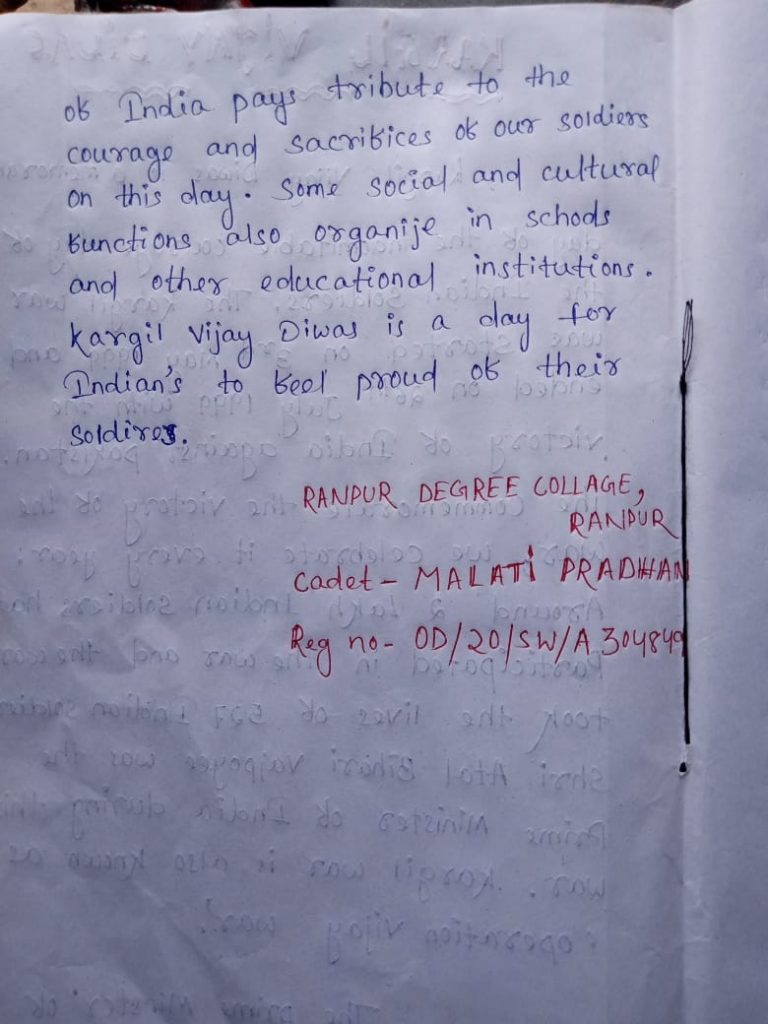 of India pays tribute to the
courage and sacrifices of our soldiers
on this day. Some social and cultural
functions also organije in schools
and other educational institutions.
Kargil Vijay Diwas is a day for
Indian's to feel proud of their
soldires.
RANPUR DEGREE COLLAGE,
RANPUR
Cadet - MALATI PRADHAN
Reg no- OD/20/SW/A 304849